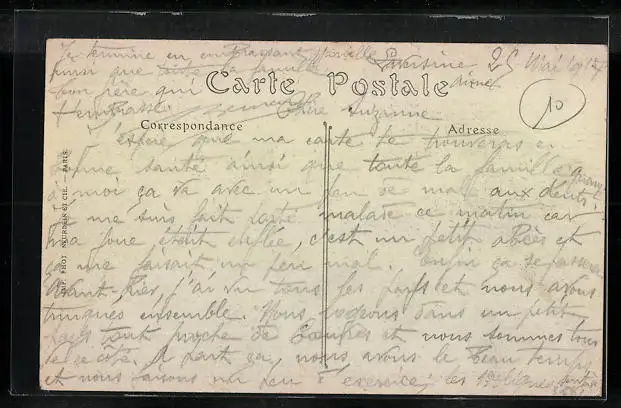 Je termine en embrassant Marcelle
ainsi que toute la famille
ton père qui
t'embrasse
25 Mai 1917
Aisne
10
Carte Postale
Chère Suzanne
Correspondance
Adresse
J'espère que ma carte te trouvera en
bonne santé ainsi que toute la famille
moi ça va avec un peu de mal aux dents
je me suis fait porté malade ce matin car
ma joue était enflée, c'est un petit abcès et
ça me faisait un peu mal. Enfin ça se passera
Avant-hier, j'ai vu tous les et nous avons
ensemble. Nous logeons dans un petit
pays tout proche de et nous sommes tous
de ce côté. A part ça, nous avons le beau temps
et nous faisons un peu d'exercice, les
IMP. PHOT. NEURDEIN ET CIE. — PARIS.